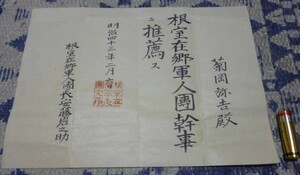 菊岡弥吉殿
根室在郷軍人團幹事
ニ推薦ス
明治四十三年二月
根室在郷軍人團長安藤厳之助